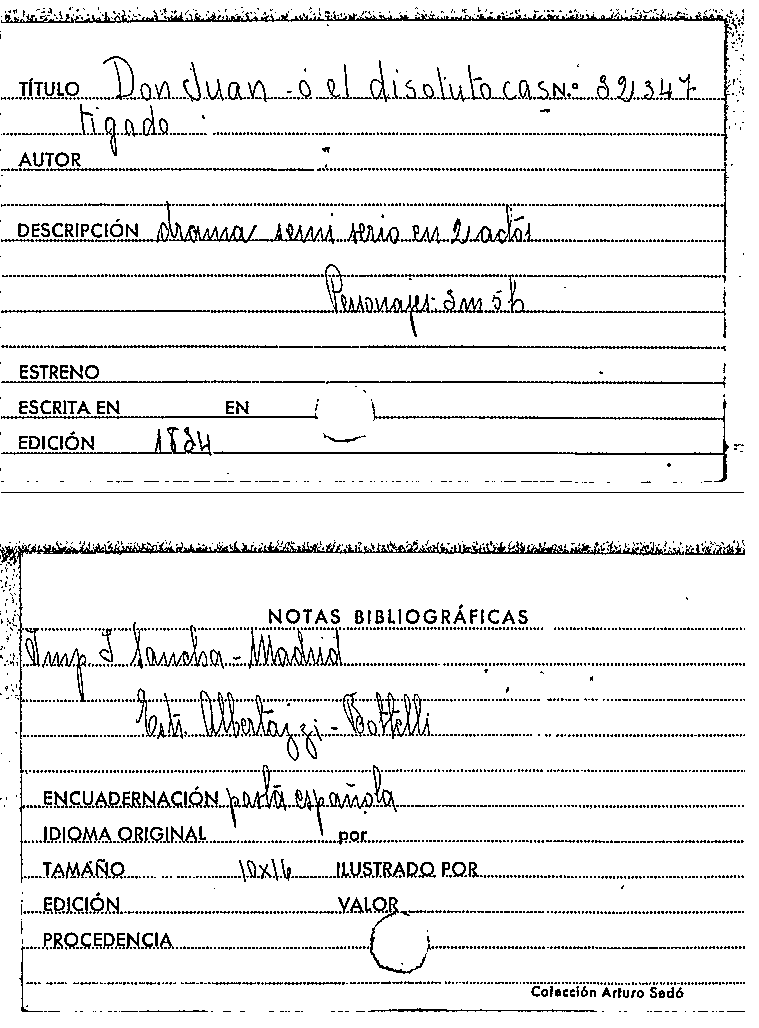 TÍTULO Don Juan - ó el disoluto cas N.º 32347
tigado
AUTOR
DESCRIPCIÓN drama semi serio en 2 actos
Personajes 3m 5h
ESTRENO
ESCRITA EN EN
EDICIÓN 1834
NOTAS BIBLIOGRÁFICAS
Imp I Sancha - Madrid
Albertazzi -
ENCUADERNACIÓN pasta española
IDIOMA ORIGINAL por
TAMAÑO 10x16 ILUSTRADO POR
EDICIÓN VALOR
PROCEDENCIA
Colección Arturo Sedó